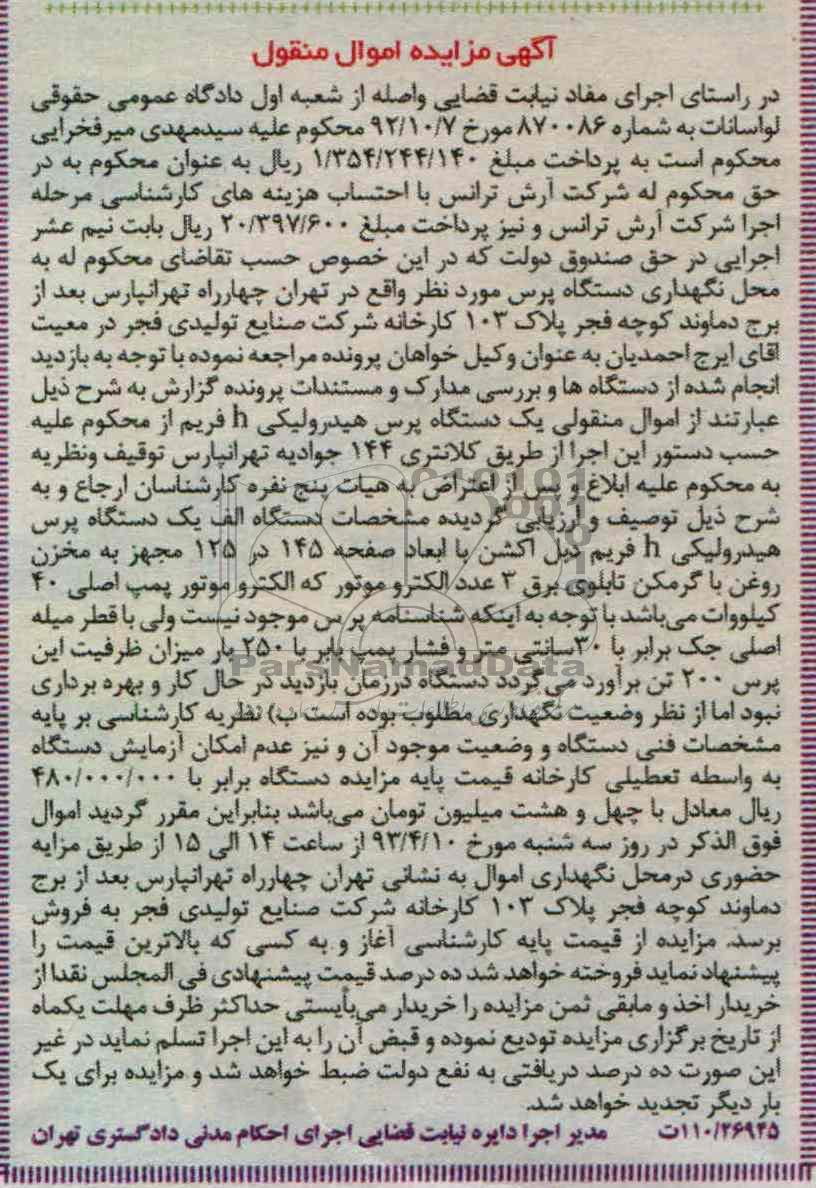 آگهی مزایده اموال منقول
در راستای اجرای مفاد نیابت قضایی واصله از شعبه اول دادگاه عمومی حقوقی
لواسانات به شماره ۸۷۰۰۸۶ مورخ ۹۲/۱۰/۷ محکوم علیه سیدمهدی میرفخرایی
محکوم است به پرداخت مبلغ ۱/۳۵۴/۲۴۴/۱۴۰ ریال به عنوان محکوم به در
حق محکوم له شرکت آرش ترانس با احتساب هزینه های کارشناسی مرحله
اجرا شرکت آرش ترانس و نیز پرداخت مبلغ ۲۰/۳۹۷/۶۰۰ ریال بابت نیم عشر
اجرایی در حق صندوق دولت که در این خصوص حسب تقاضای محکوم له به
محل نگهداری دستگاه پرس مورد نظر واقع در تهران چهارراه تهرانپارس بعد از
برج دماوند کوچه فجر پلاک ۱۰۳ کارخانه شرکت صنایع تولیدی فجر در معیت
اقای ایرج احمدیان به عنوان وکیل خواهان پرونده مراجعه نموده با توجه به بازدید
انجام شده از دستگاه ها و بررسی مدارک و مستندات پرونده گزارش به شرح ذیل
عبارتند از اموال منقولی یک دستگاه پرس هیدرولیکی h فریم از محکوم علیه
حسب دستور این اجرا از طریق کلانتری ۱۴۴ جوادیه تهرانپارس توقیف ونظریه
به محکوم علیه ابلاغ و پس از اعتراض به هیات پنج نفره کارشناسان ارجاع و به
شرح ذیل توصیف و ارزیابی گردیده مشخصات دستگاه الف یک دستگاه پرس
هیدرولیکی h فریم دبل اکشن با ابعاد صفحه ۱۴۵ در ۱۲۵ مجهز به مخزن
روغن با گرمکن تابلوی برق ۳ عدد الکترو موتور که الکترو موتور پمپ اصلی ۴۰
کیلووات می‌باشد با توجه به اینکه شناسنامه پرس موجود نیست ولی با قطر میله
اصلی جک برابر با ۳۰سانتی متر و فشار پمپ بابر با ۲۵۰ بار میزان ظرفیت این
پرس ۲۰۰ تن برآورد می‌گردد دستگاه درزمان بازدید در حال کار و بهره برداری
نبود اما از نظر وضعیت نگهداری مطلوب بوده است ب) نظریه کارشناسی بر پایه
مشخصات فنی دستگاه و وضعیت موجود آن و نیز عدم امکان آزمایش دستگاه
به واسطه تعطیلی کارخانه قیمت پایه مزایده دستگاه برابر با ۴۸۰/۰۰۰/۰۰۰
ریال معادل با چهل و هشت میلیون تومان می‌باشد بنابراین مقرر گردید اموال
فوق الذکر در روز سه شنبه مورخ ۹۳/۴/۱۰ از ساعت ۱۴ الی ۱۵ از طریق مزایه
حضوری درمحل نگهداری اموال به نشانی تهران چهارراه تهرانپارس بعد از برج
دماوند کوچه فجر پلاک ۱۰۳ کارخانه شرکت صنایع تولیدی فجر به فروش
برسد. مزایده از قیمت پایه کارشناسی آغاز و به کسی که بالاترین قیمت را
پیشنهاد نماید فروخته خواهد شد ده درصد قیمت پیشنهادی فی المجلس نقدا از
خریدار اخذ و مابقی ثمن مزایده را خریدار می‌بایستی حداکثر ظرف مهلت یکماه
از تاریخ برگزاری مزایده تودیع نموده و قبض آن را به این اجرا تسلم نماید در غیر
این صورت ده درصد دریافتی به نفع دولت ضبط خواهد شد و مزایده برای یک
بار دیگر تجدید خواهد شد.
۱۱۰/۲۶۹۴۵ت مدیر اجرا دایره نیابت قضایی اجرای احکام مدنی دادگستری تهران
ParsNamadData